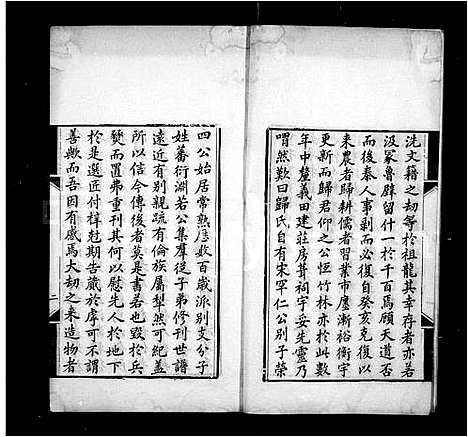 洗文藉之刼等於祖龍其幸存者亦若
汲冢魯壁留什一於千百馬顧天道否
而後秦人事剥而必復自癸亥克復以
来農者歸耕儒者習業市廛漸裕衡宇
更新而歸君仰之公恒竹林亦於此數
年中釐義田建莊房葺祠宇妥先靈乃
喟然歎曰歸氏自有宋罕仁公别子榮
四公始居常熟歷數百歲派别支分子
姓蕃衍淵若公集羣從子弟修刊世譜
遠近有别親疏有倫族屬犁然可紀蓋
所以信今傳後者莫是書若與於兵
燹而置弗重刊其何以慰先人於地下
於是選匠付梓尅期告蕆於虖可不謂
善歟而吾因有感焉大劫之来造物者
二